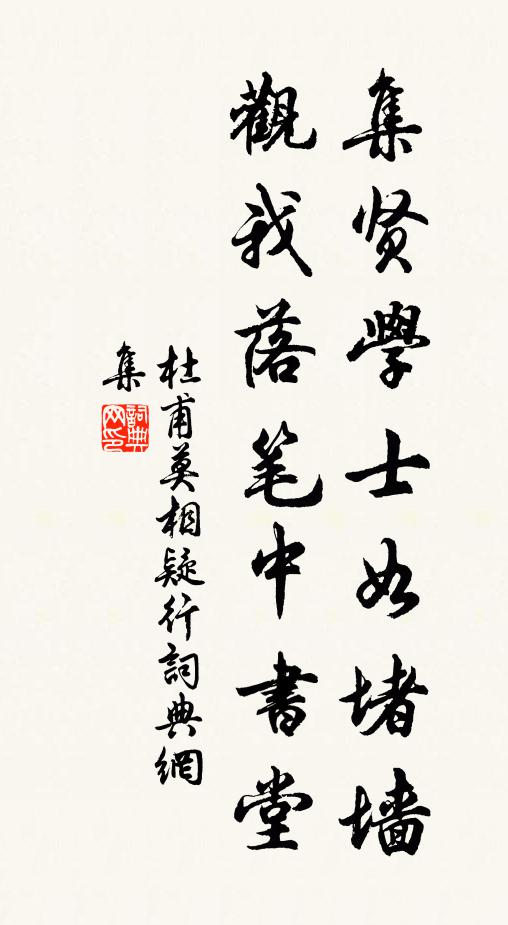 集贤學士如堵墙
觀我落笔中書堂
杜甫莫相疑行詞典網
集
詞典网印